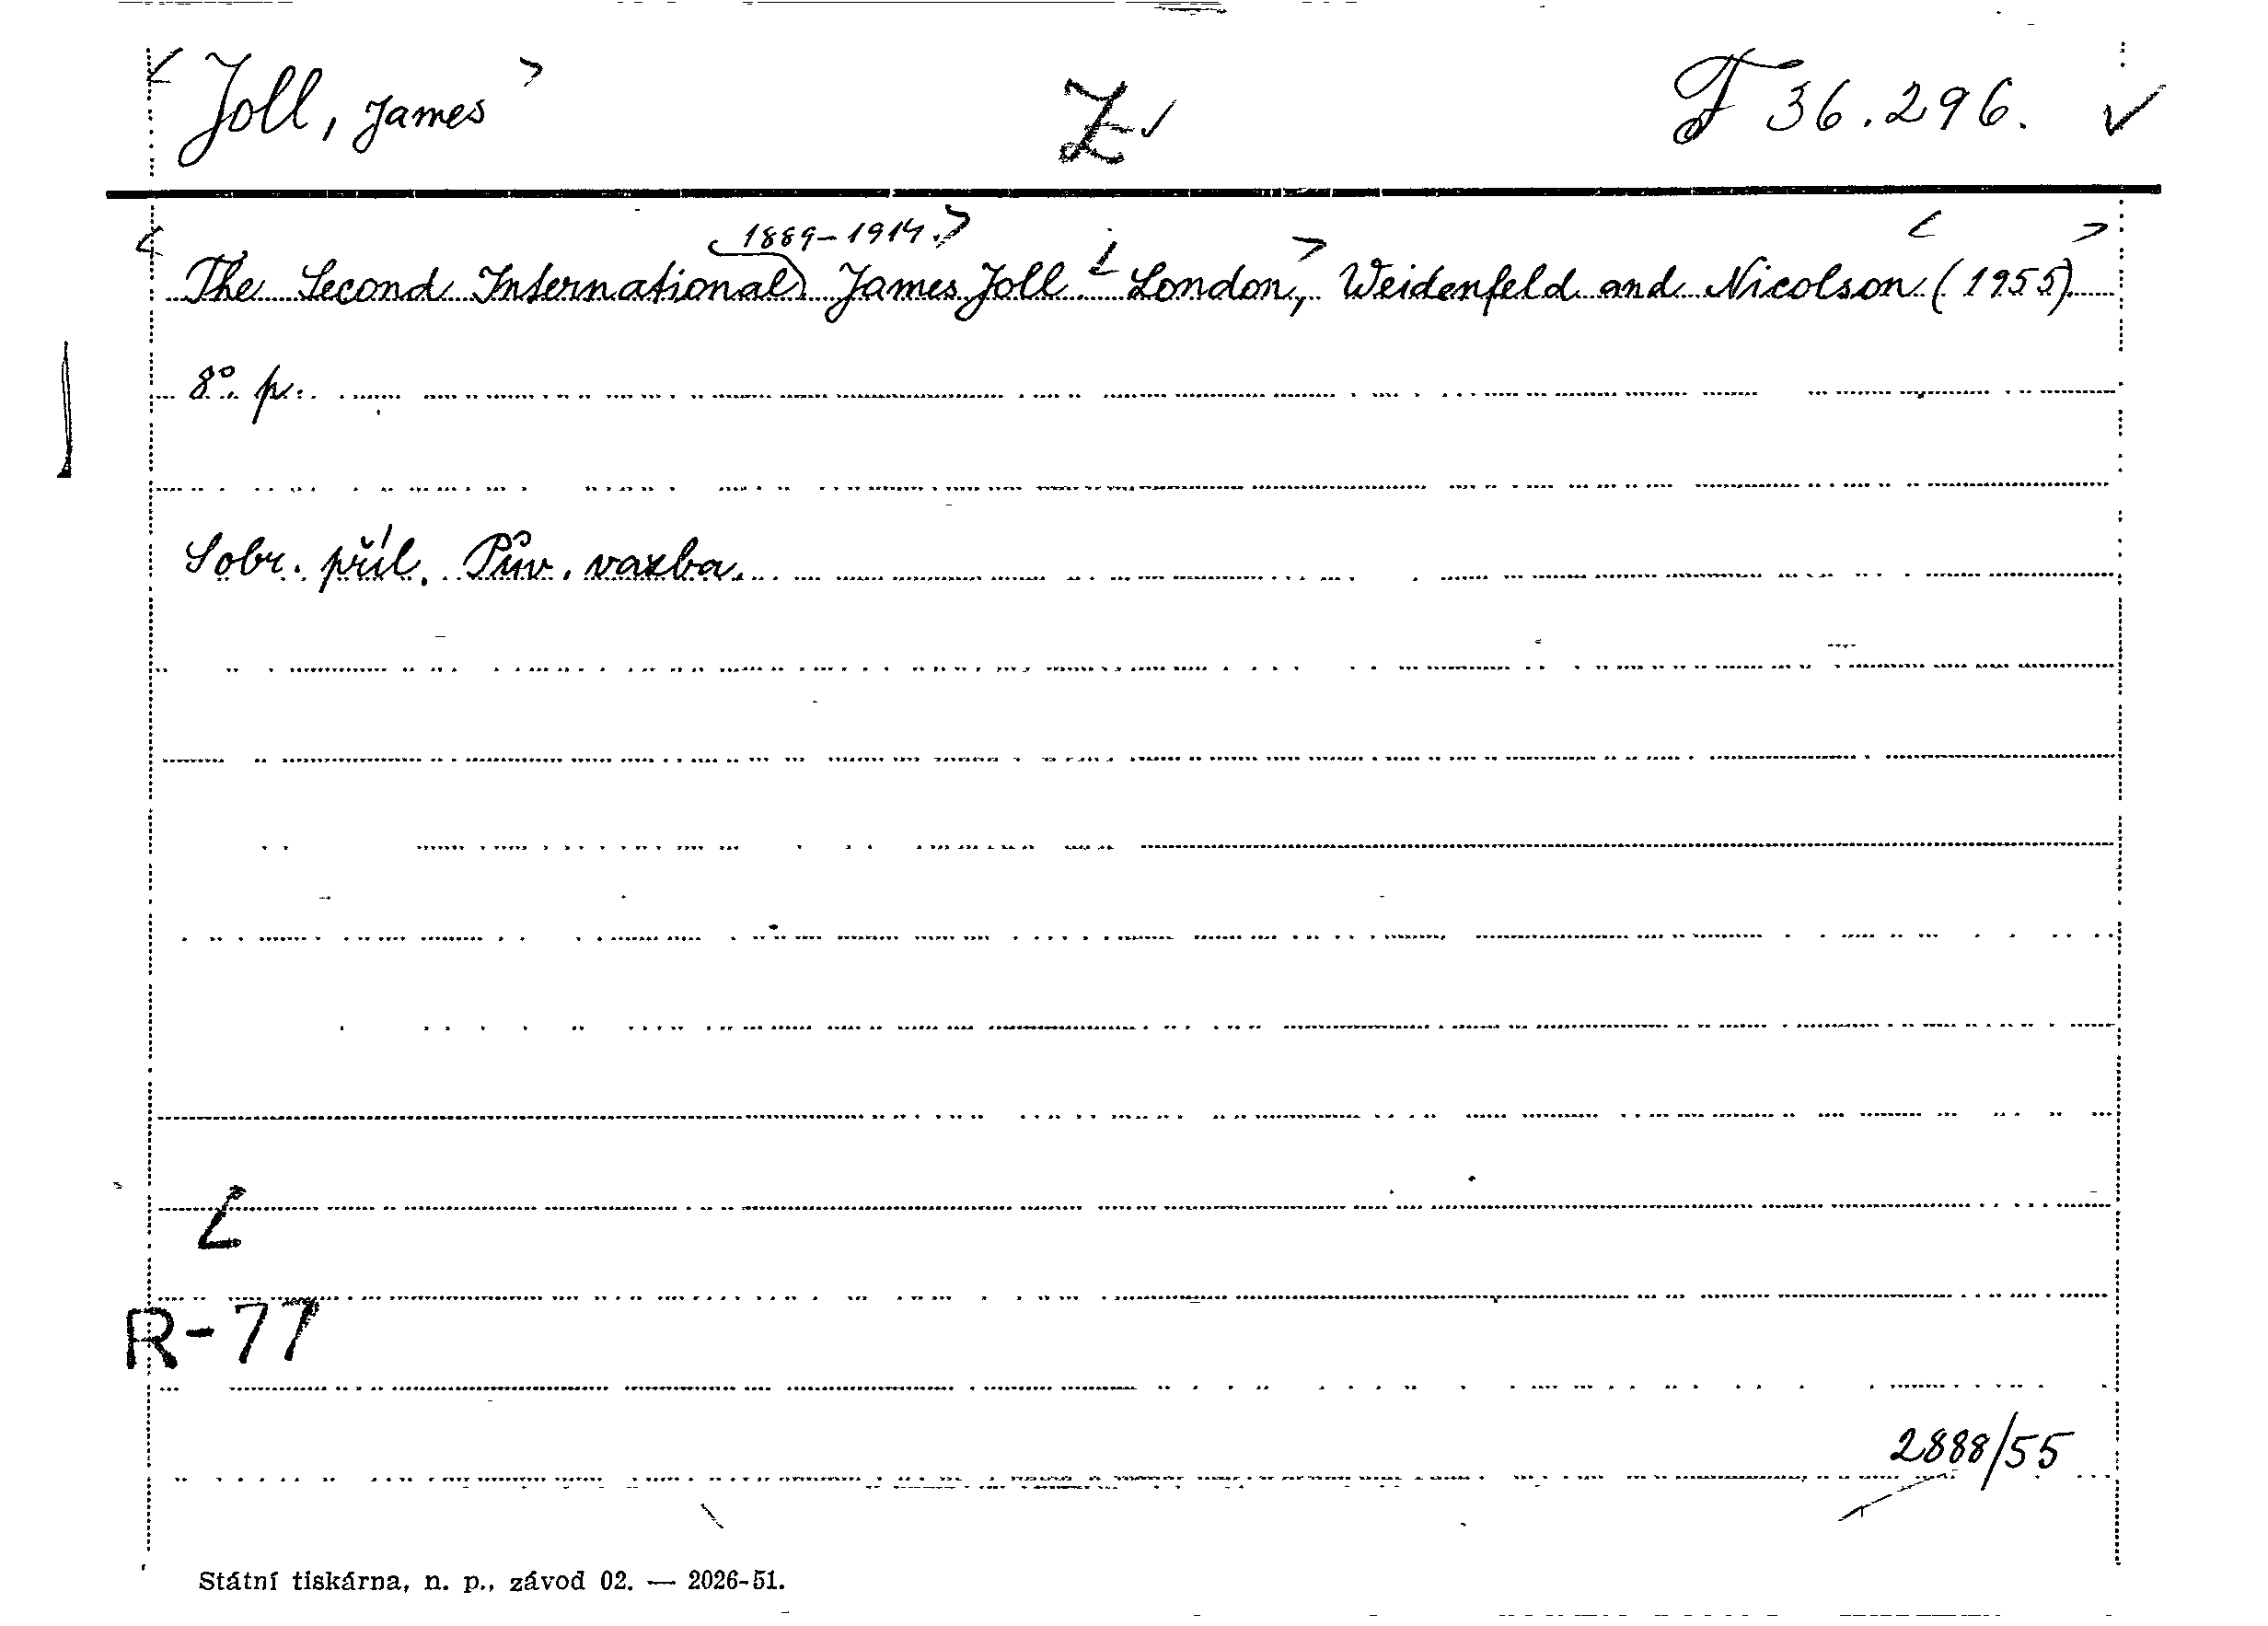 < Joll, James > Z ✓ F 36.296. ✓
1889-1914. >
< The Second International James Joll < London, > Weidenfeld and Nicolson < (1955). >
8°. p.
Sobr. příl. Pův. vazba.
L
R-77
2888/55
Státní tiskárna, n. p., závod 02. — 2026-51.